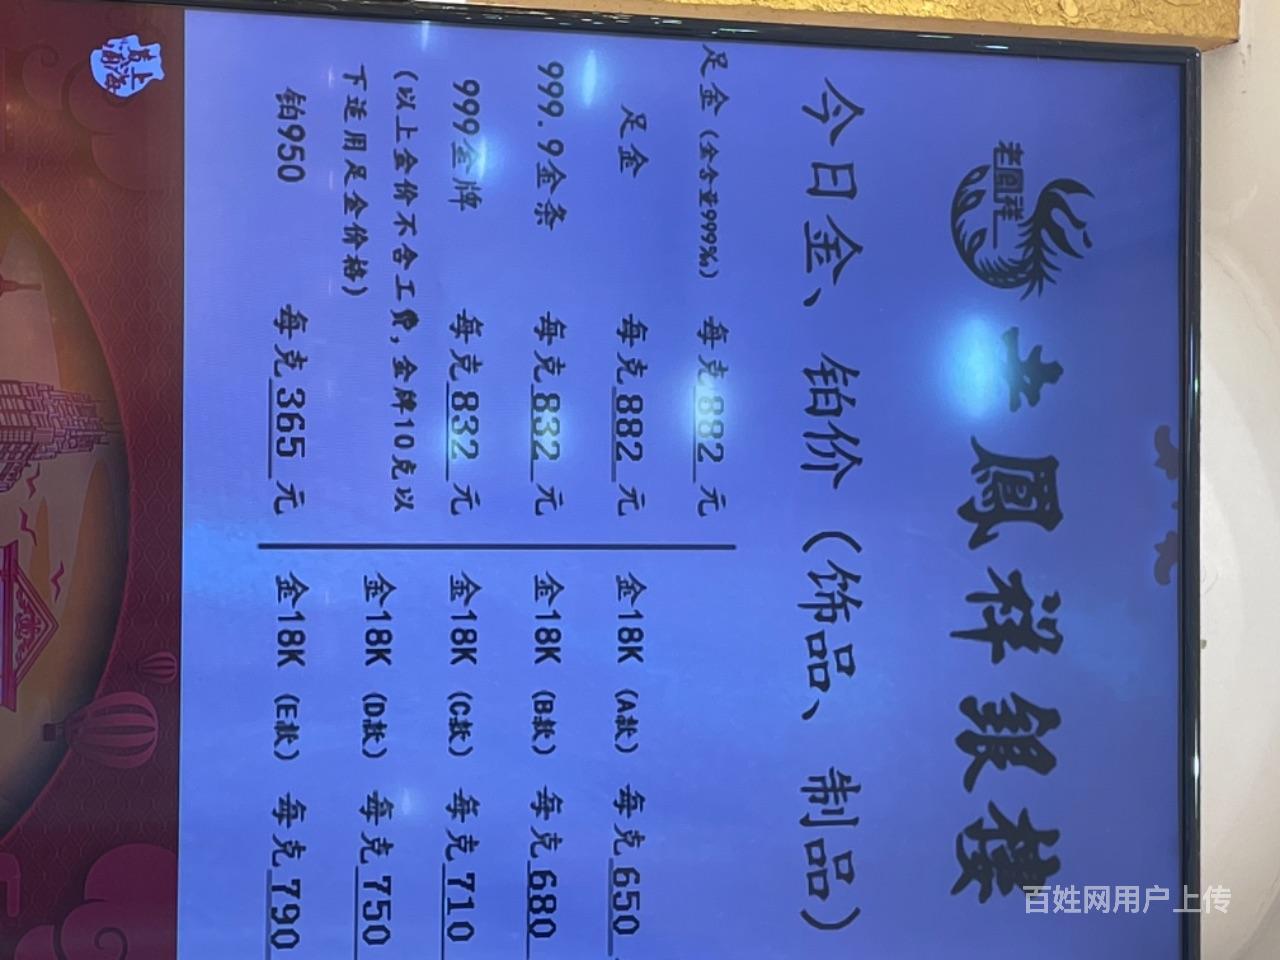 老鳳祥
老鳳祥銀樓
今日金、铂价（饰品、制品）
足金（金含量999‰） 每克 882 元
足金 每克 882 元
999.9金条 每克 832 元
999金牌 每克 832 元
（以上金价不含工费，金牌10克以
下适用足金价格）
铂950 每克 365 元
金18K（A款） 每克 650
金18K（B款） 每克 680
金18K（C款） 每克 710
金18K（D款） 每克 750
金18K（E款） 每克 790
上海
百姓网用户上传